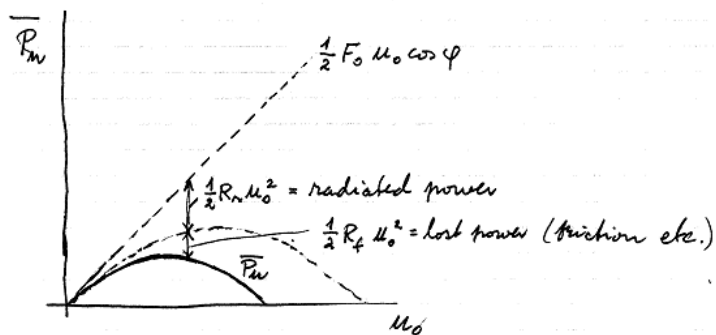 P̅ᵤ
½ F₀ u₀ cos φ
½ Rᵣ u₀² = radiated power
½ R_f u₀² = lost power (friction etc.)
P̅ᵤ
u₀